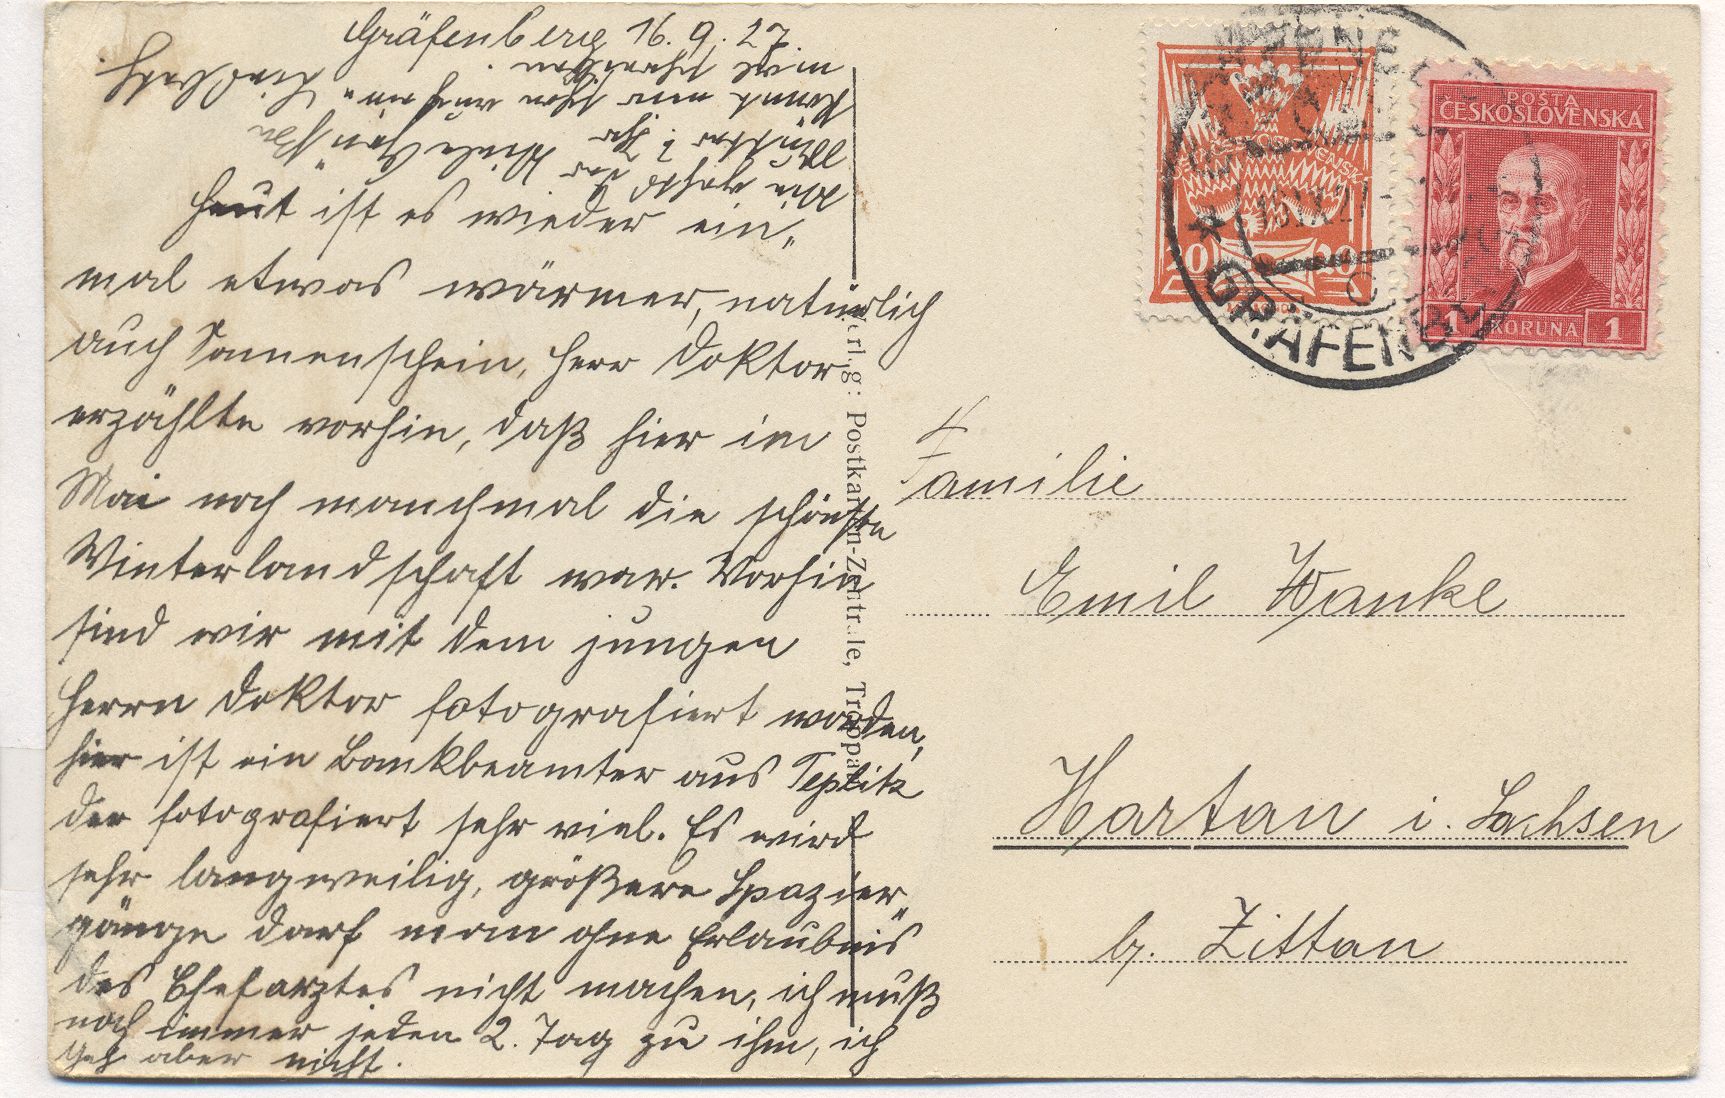 Gräfenberg 16.9.27.
Heut ist es wieder ein„
mal etwas wärmer, natürlich
auch Sonnenschein, Herr Doktor
erzählte vorhin, daß hier im
Mai noch manchmal die schönste
Winterlandschaft war. Vorhin
sind wir mit dem jungen
Herrn Doktor fotografiert worden,
hier ist ein Bankbeamter aus Teplitz
der fotografiert sehr viel. Es wird
sehr langweilig, größere Spazier„
gänge darf man ohne Erlaubnis
des Chefarztes nicht machen, ich muß
noch immer jeden 2. Tag zu ihm, ich
geh aber nicht.
Wie geht's der
Mutter? Ihr
könnt mir schon auch ein„
mal schreiben.
POŠTA
ČESKOSLOVENSKÁ
1 KORUNA 1
20 20
GRÄFENBE
Familie
Emil Wanke
Hartau i. Sachsen
b. Zittau
Postkarten-Zentrale, Troppau